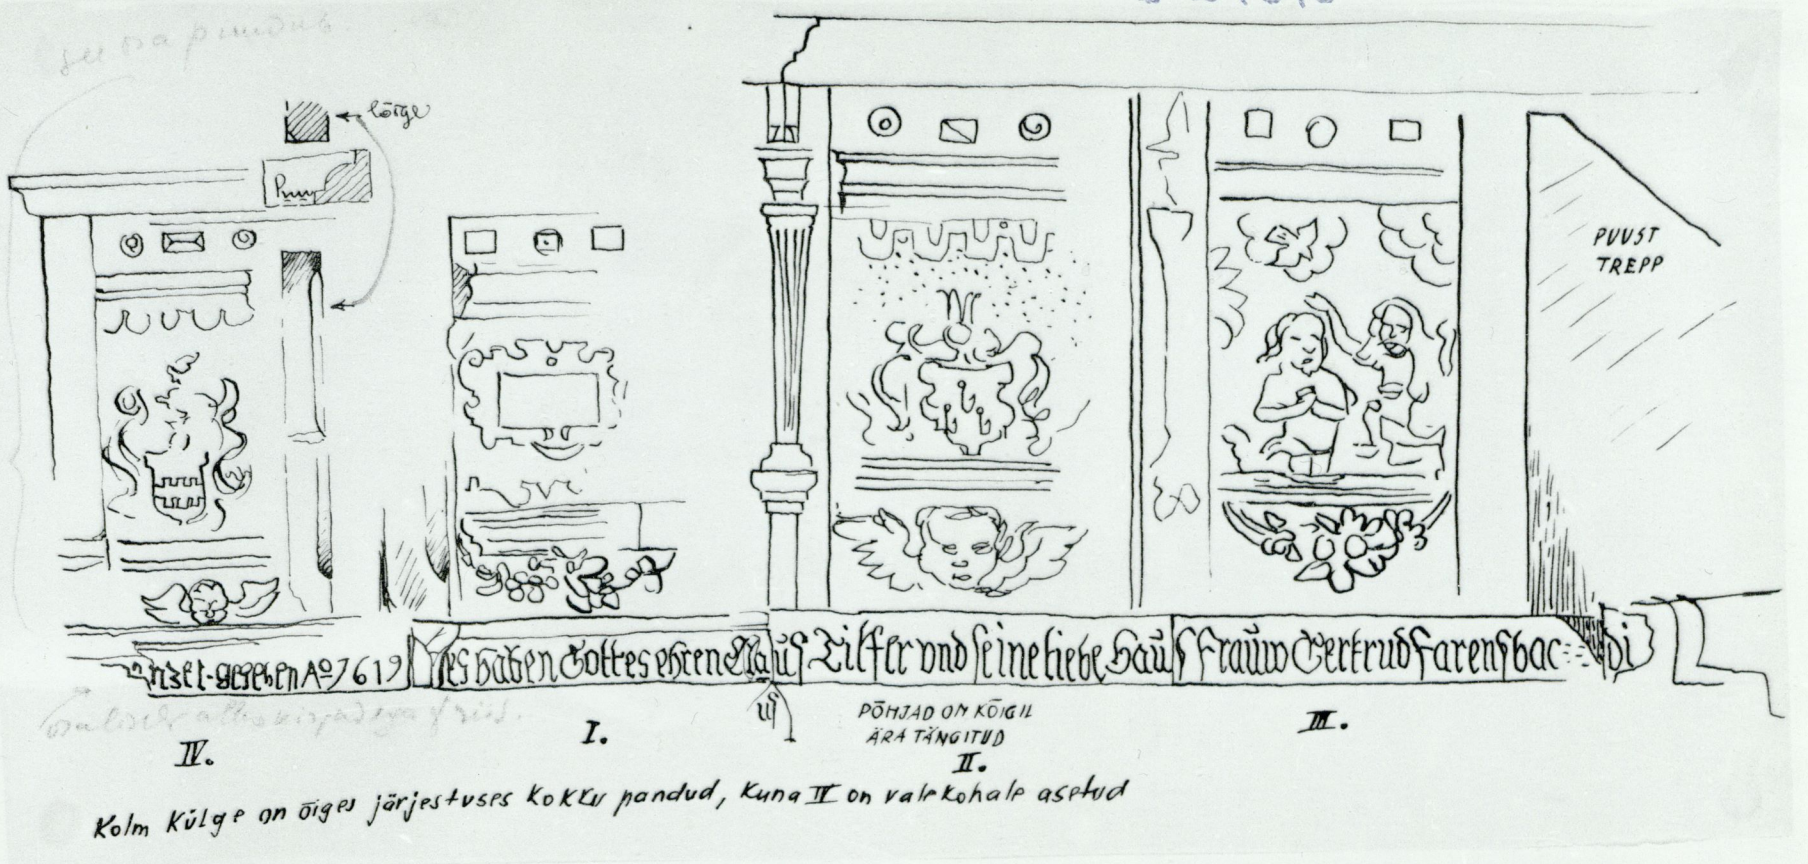 see osa puudub
lõige
Puu
PUUST
TREPP
nzel·gegeben Aº 1619
es haben Gottes ehren Claus Tilfer vnd seine liebe Hausfrauw Gertrud Farensbac
di
us
PÕHJAD ON KÕIGIL
ÄRA TÄNGITUD
IV.
I.
II.
III.
Kolm Külge on õiges järjestuses kokku pandud, kuna IV on valekohale asetud